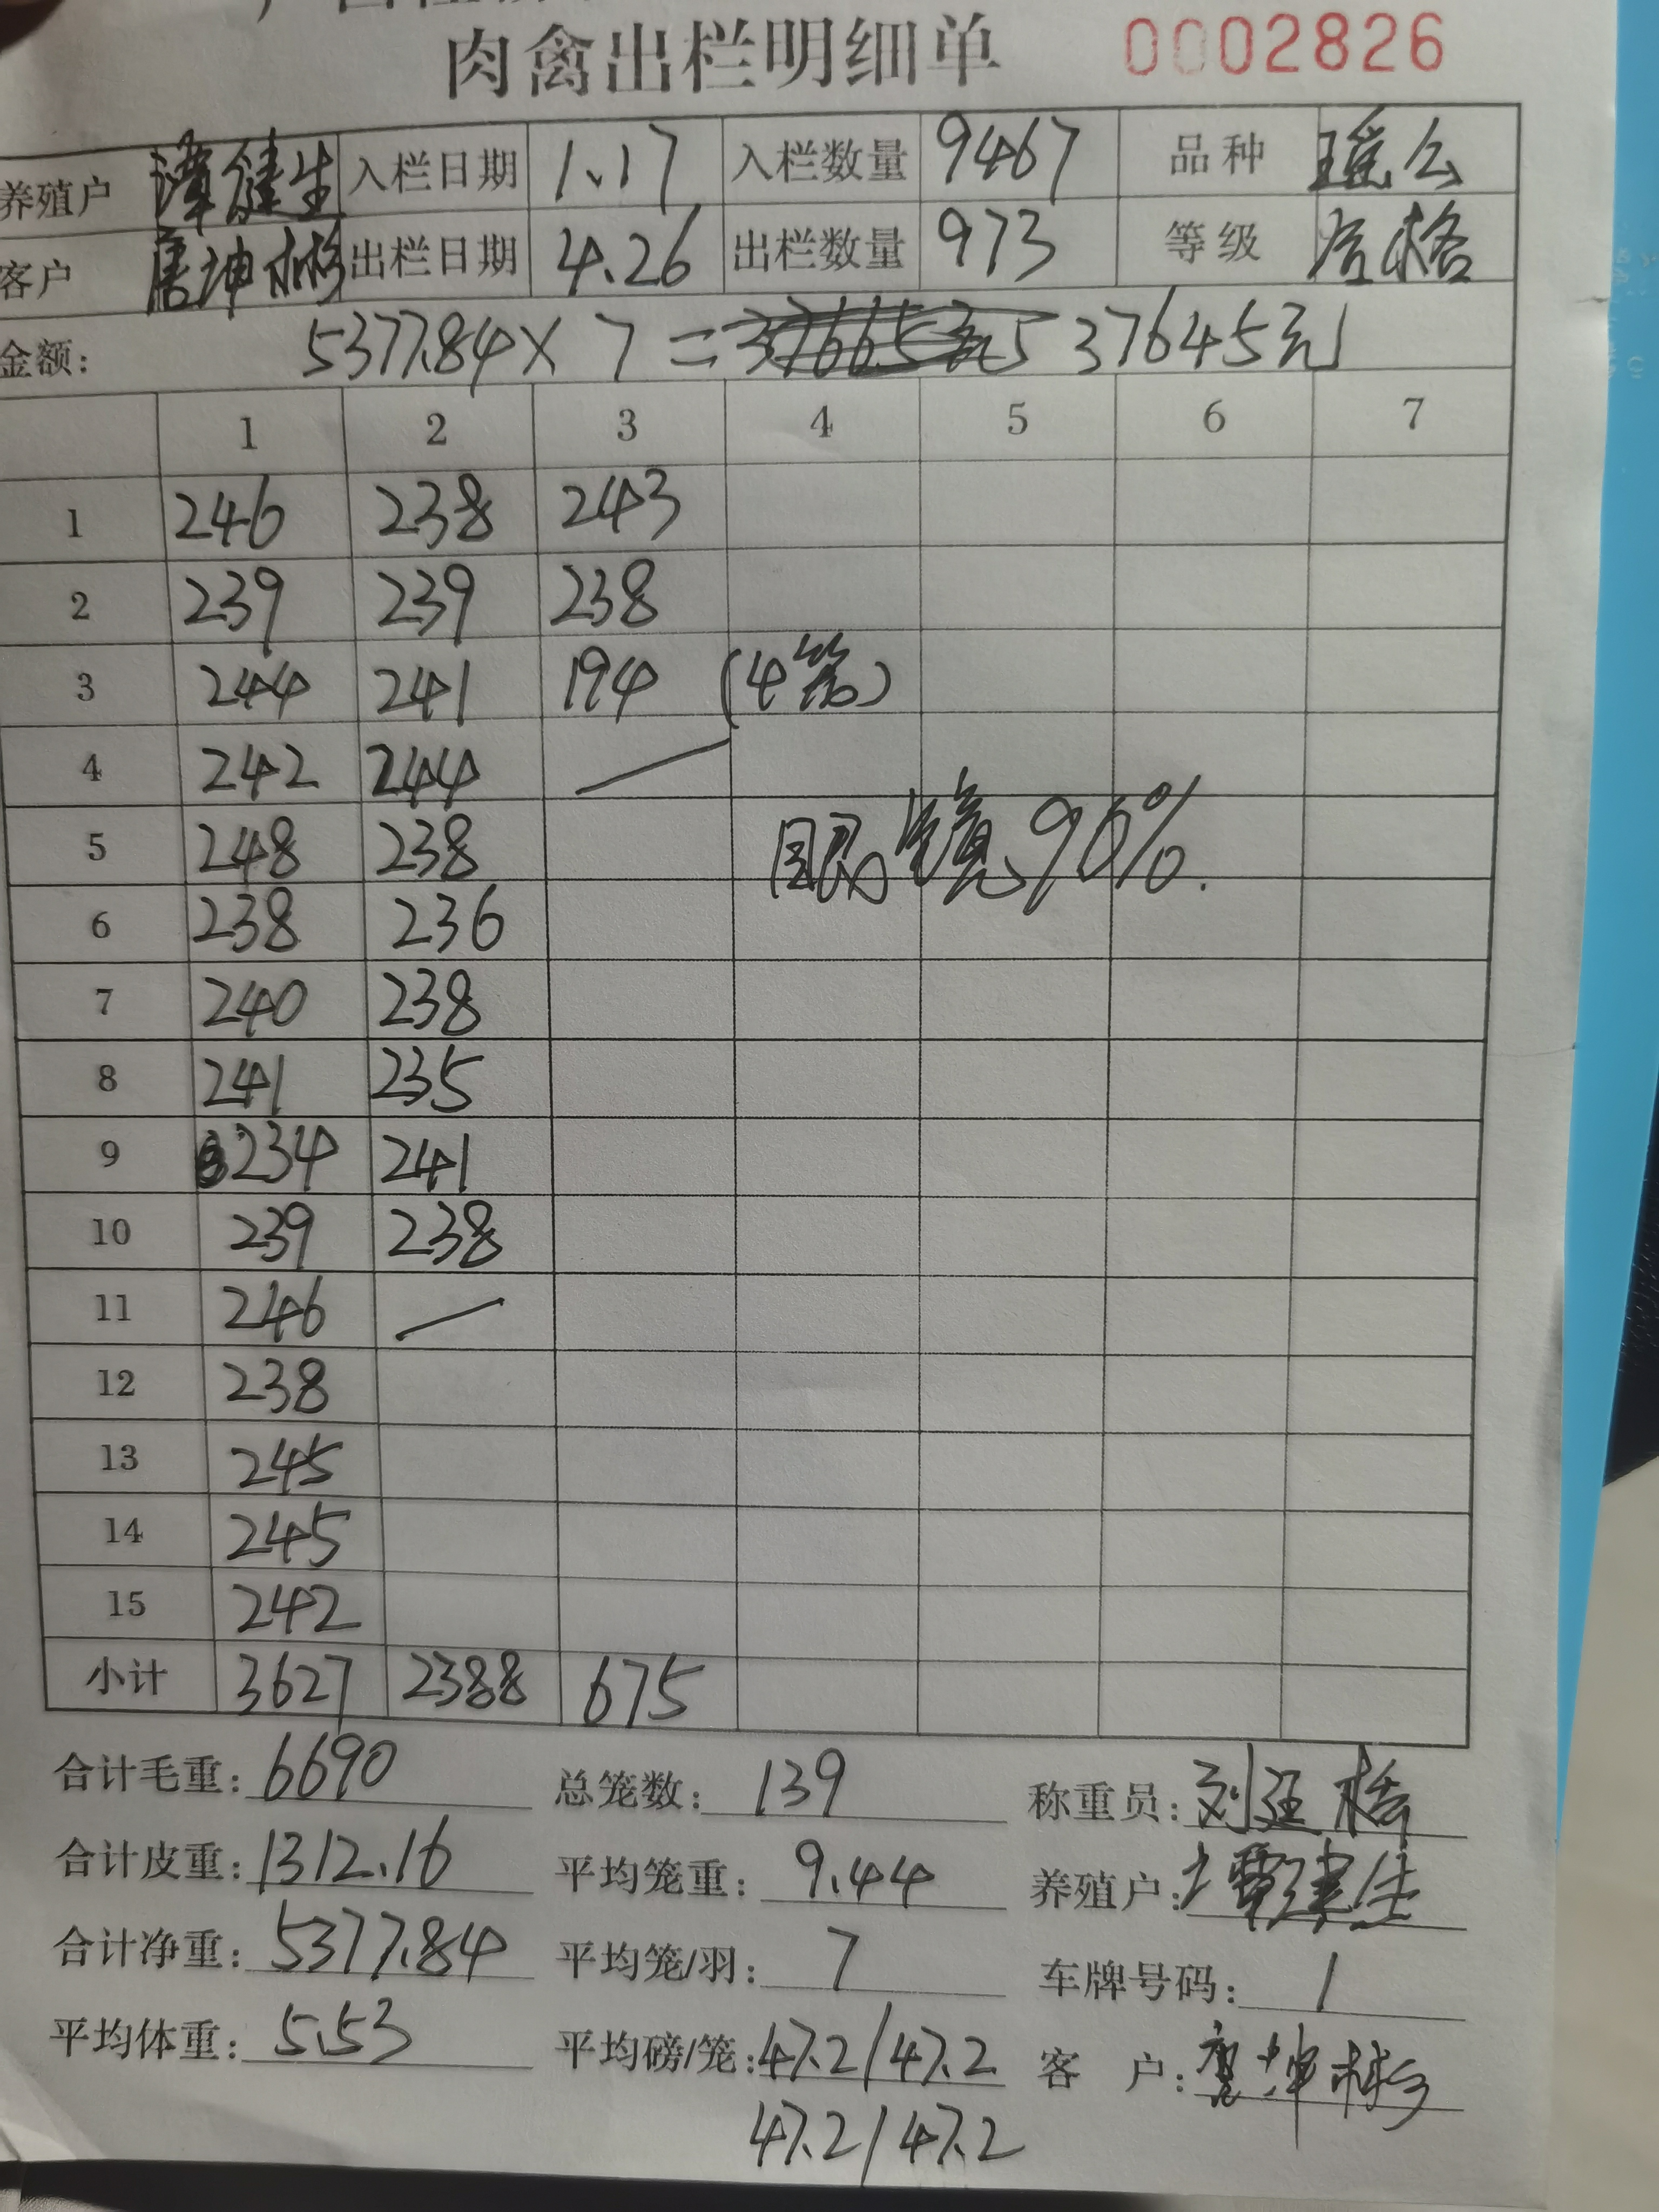 肉禽出栏明细单 0002826
养殖户 谭健生 入栏日期 1.17 入栏数量 9467 品种 瑶公
客户 唐坤彬 出栏日期 4.26 出栏数量 973 等级 合格
金额: 5377.84×7= 37645元
1 2 3 4 5 6 7
1 246 238 243
2 239 239 238
3 244 241 194 (4笼)
4 242 244
5 248 238 眼镜90%.
6 238 236
7 240 238
8 241 235
9 234 241
10 239 238
11 246
12 238
13 245
14 245
15 242
小计 3627 2388 675
合计毛重: 6690 总笼数: 139 称重员:
合计皮重: 1312.16 平均笼重: 9.44 养殖户: 谭建生
合计净重: 5377.84 平均笼/羽: 7 车牌号码: 1
平均体重: 5.53 平均磅/笼: 47.2/47.2 客 户: 唐坤彬
47.2/47.2